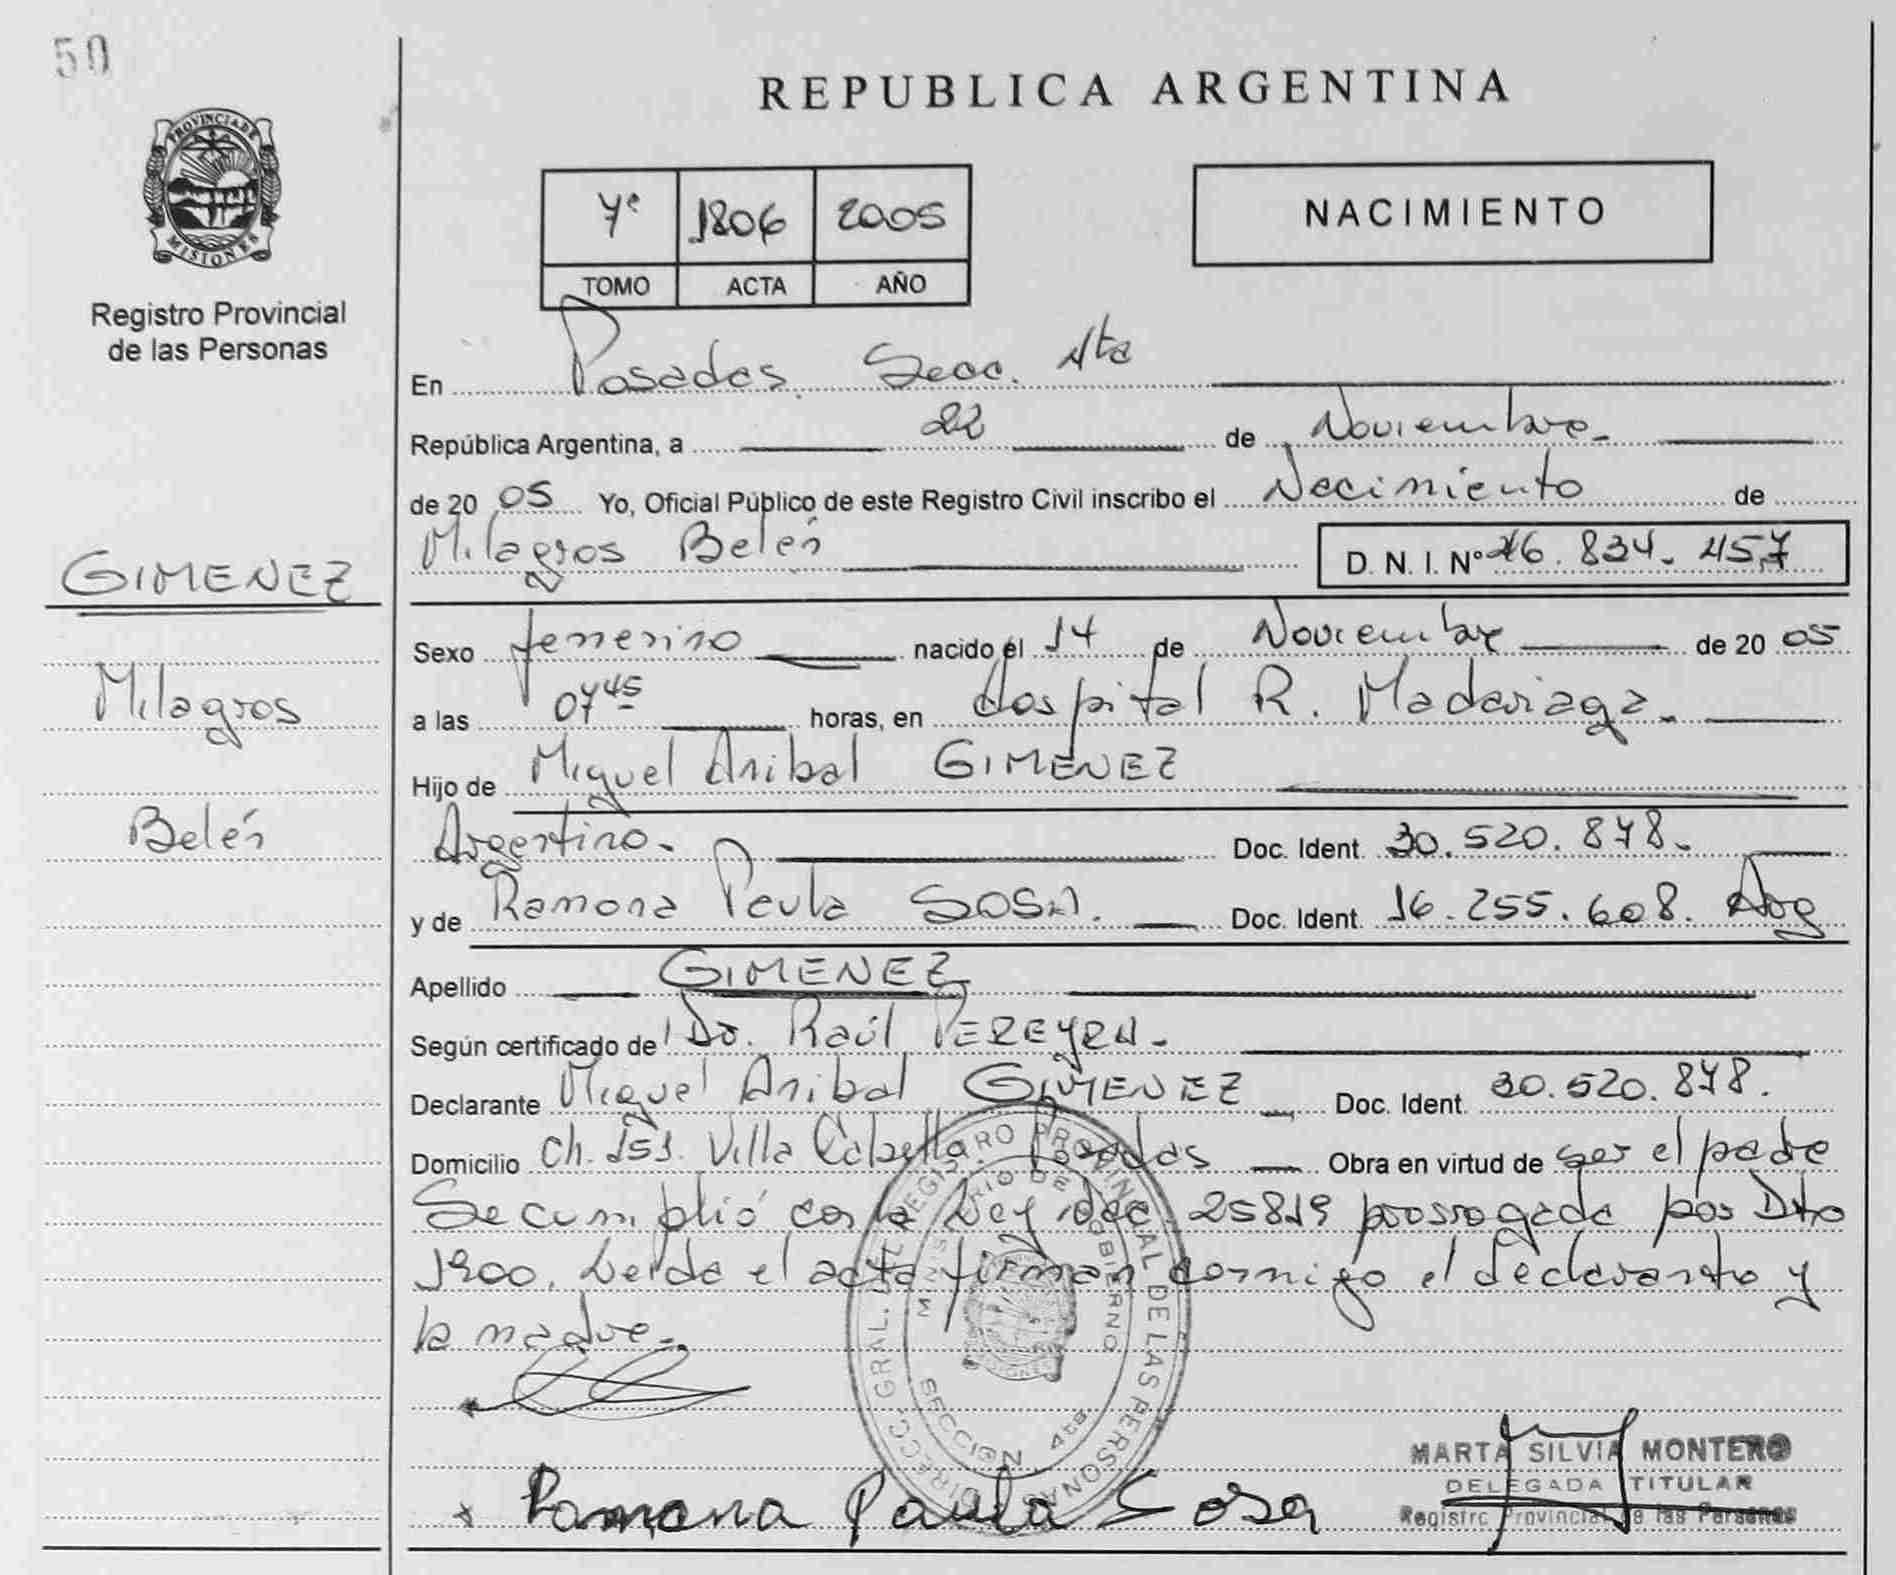 50
REPUBLICA ARGENTINA
PROVINCIA DE MISIONES
7º 1806 2005
TOMO ACTA AÑO
NACIMIENTO
Registro Provincial
de las Personas
En Posadas Secc. 4ta
República Argentina, a 22 de Noviembre.
de 20 05 Yo, Oficial Público de este Registro Civil inscribo el Nacimiento de
Milagros Belén D. N. I. Nº 46.834.457
GIMENEZ
Milagros
Belén
Sexo femenino nacido el 14 de Noviembre de 20 05
a las 07 45 horas, en Hospital R. Madariaga.
Hijo de Miguel Anibal GIMENEZ
Argentino. Doc. Ident. 30.520.878.
y de Ramona Paula SOSA. Doc. Ident. 16.255.608. Arg
Apellido GIMENEZ
Según certificado de Dr. Raúl PEREYRA.
Declarante Miguel Anibal GIMENEZ Doc. Ident. 30.520.878.
Domicilio Ch. 151. Villa Cabello. Posadas Obra en virtud de ser el padre
Se cumplió con la Ley Nac. 25819 prorrogada por Dto
1900. Leída el acta firman conmigo el declarante y
la madre.
DIRECC. GRAL. DE REGISTRO PROVINCIAL DE LAS PERSONAS
MINISTERIO DE GOBIERNO
SECCION 4ta.
Ramona Paula Sosa
MARTA SILVIA MONTERO
DELEGADA TITULAR
Registro Provincial de las Personas